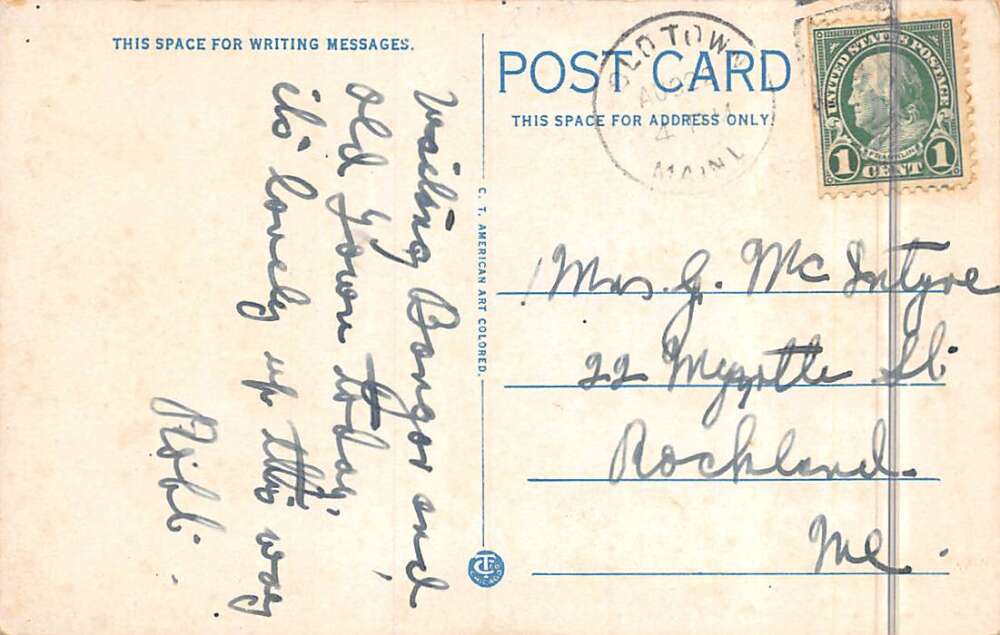 THIS SPACE FOR WRITING MESSAGES.
POST CARD
THIS SPACE FOR ADDRESS ONLY.
OLD TOWN
AUG 22
4 PM
MAINE
UNITED STATES POSTAGE
FRANKLIN
1 CENT 1
Visiting Bangor and
old Town today,
it's lovely up this way
C. T. AMERICAN ART COLORED.
Mrs. G. McIntyre
22 Myrtle St.
Rockland.
Me.